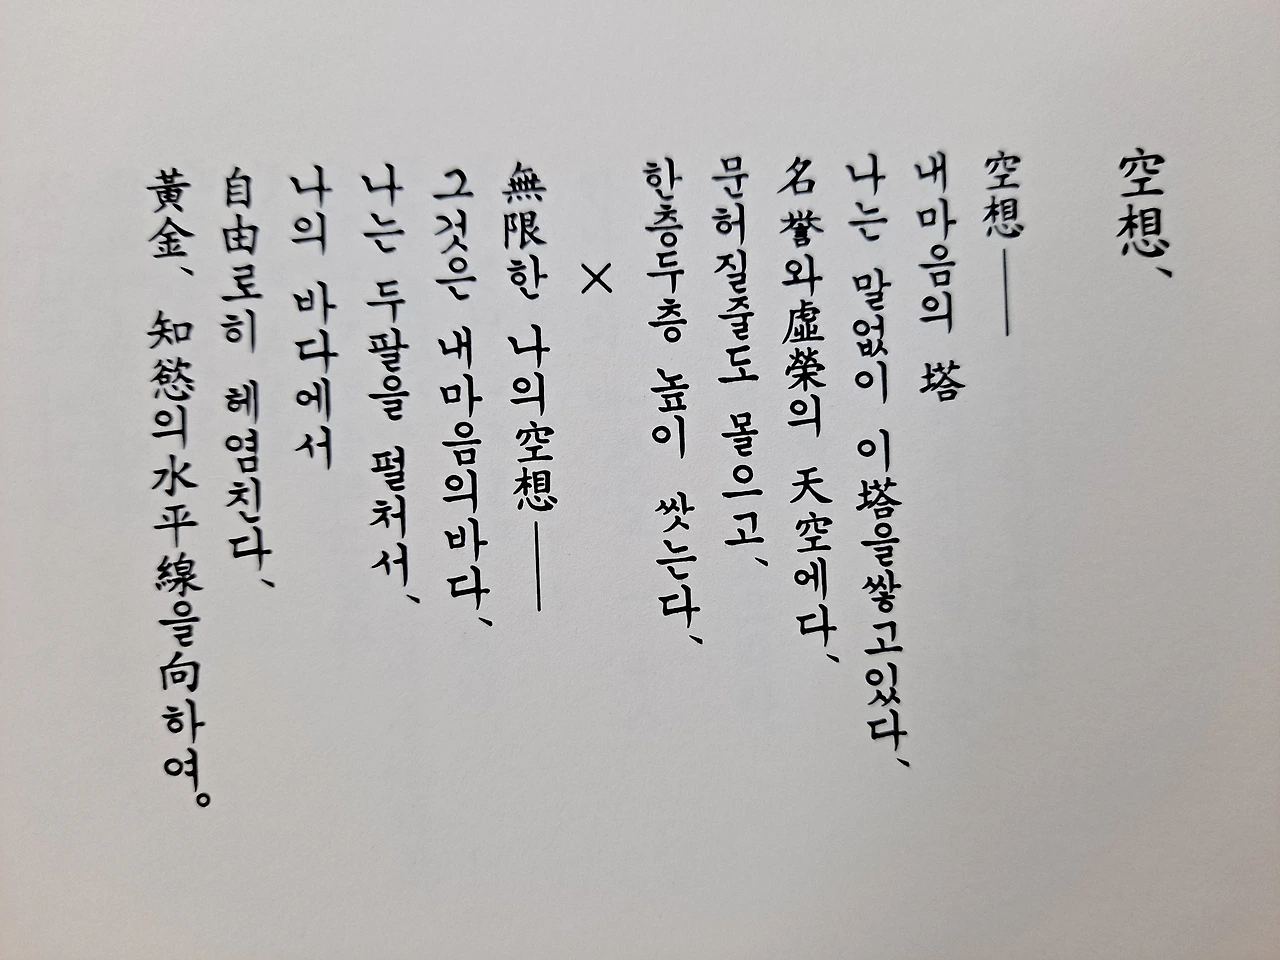 空想、
空想──
내마음의 塔
나는 말없이 이塔을쌓고있다、
名誉와虛榮의 天空에다、
문허질줄도 몰으고、
한층두층 높이 쌋는다、
×
無限한 나의空想──
그것은 내마음의바다、
나는 두팔을 펄처서、
나의 바다에서
自由로히 헤염친다、
黃金、知慾의水平線을向하여。